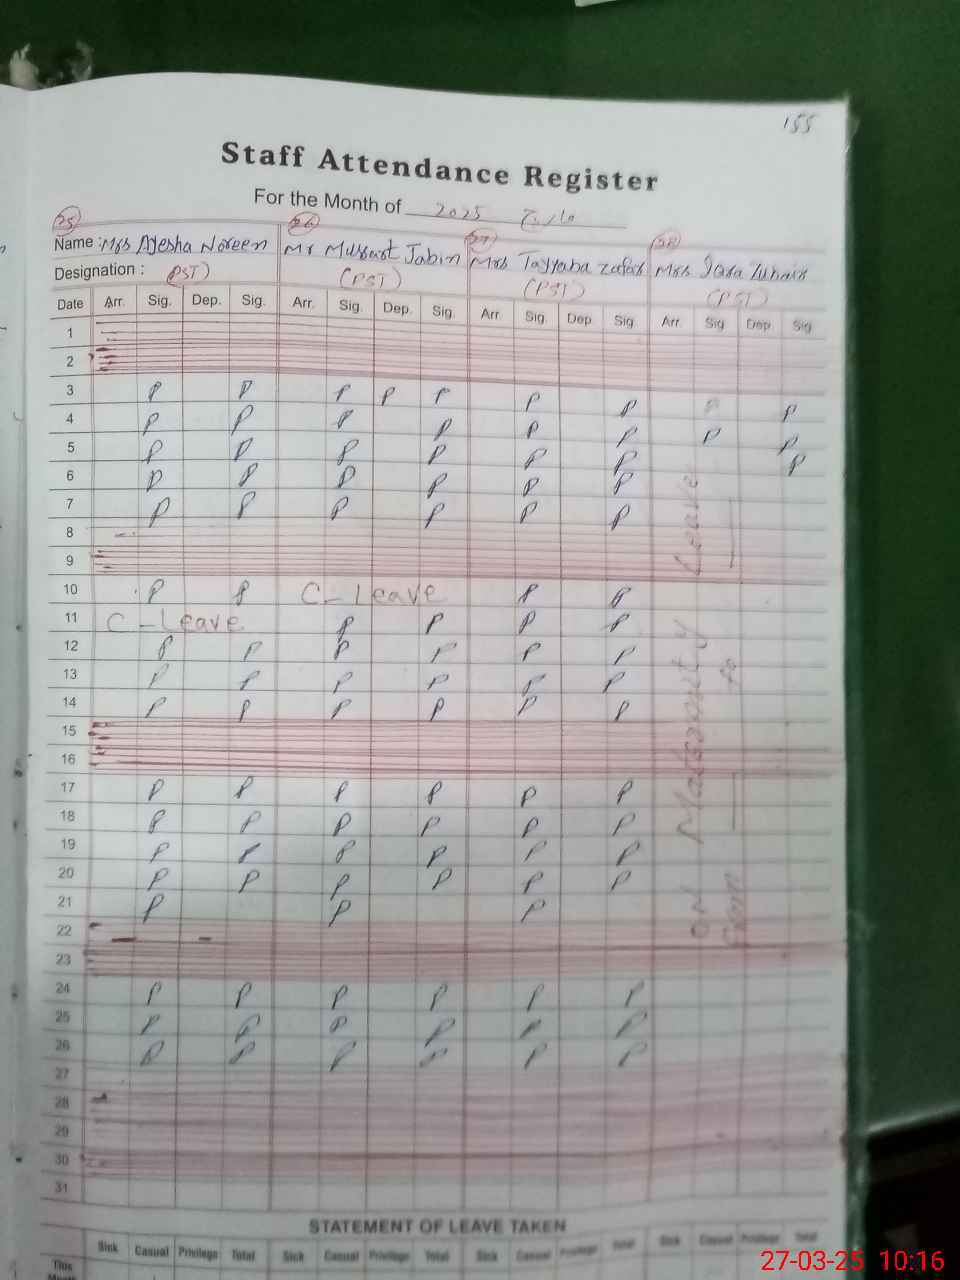 155
Staff Attendance Register
For the Month of 2025
25 26 27 28
Name : Mrs Ayesha Noreen Mr Mussart Jabin Mrs Tayyaba Zafar Mrs Zubair
Designation : (PST) (PST) (PST) (PST)
Date Arr. Sig. Dep. Sig. Arr. Sig. Dep. Sig. Arr. Sig. Dep Sig Arr. Sig Dep Sig
1
2
3 P P P P P P P P P
4 P P P P P P P P
5 P P P P P P P
6 P P P P P P
7 P P P P P P
8
9
10 P P C-Leave P P
11 C-Leave P P P P
12 P P P P P P
13 P P P P P P
14 P P P P P P
15
16
17 P P P P P P
18 P P P P P P
19 P P P P P P
20 P P P P P P
21 P P P
22
23
24 P P P P P P
25 P P P P P P
26 P P P P P P
27
28
29
30
31
ON Maternity Leave
to
STATEMENT OF LEAVE TAKEN
Sink Casual Privilege Total Sink Casual Privilege Total Sink Casual Privilege Total Sink Casual Privilege Total
This
27-03-25 10:16